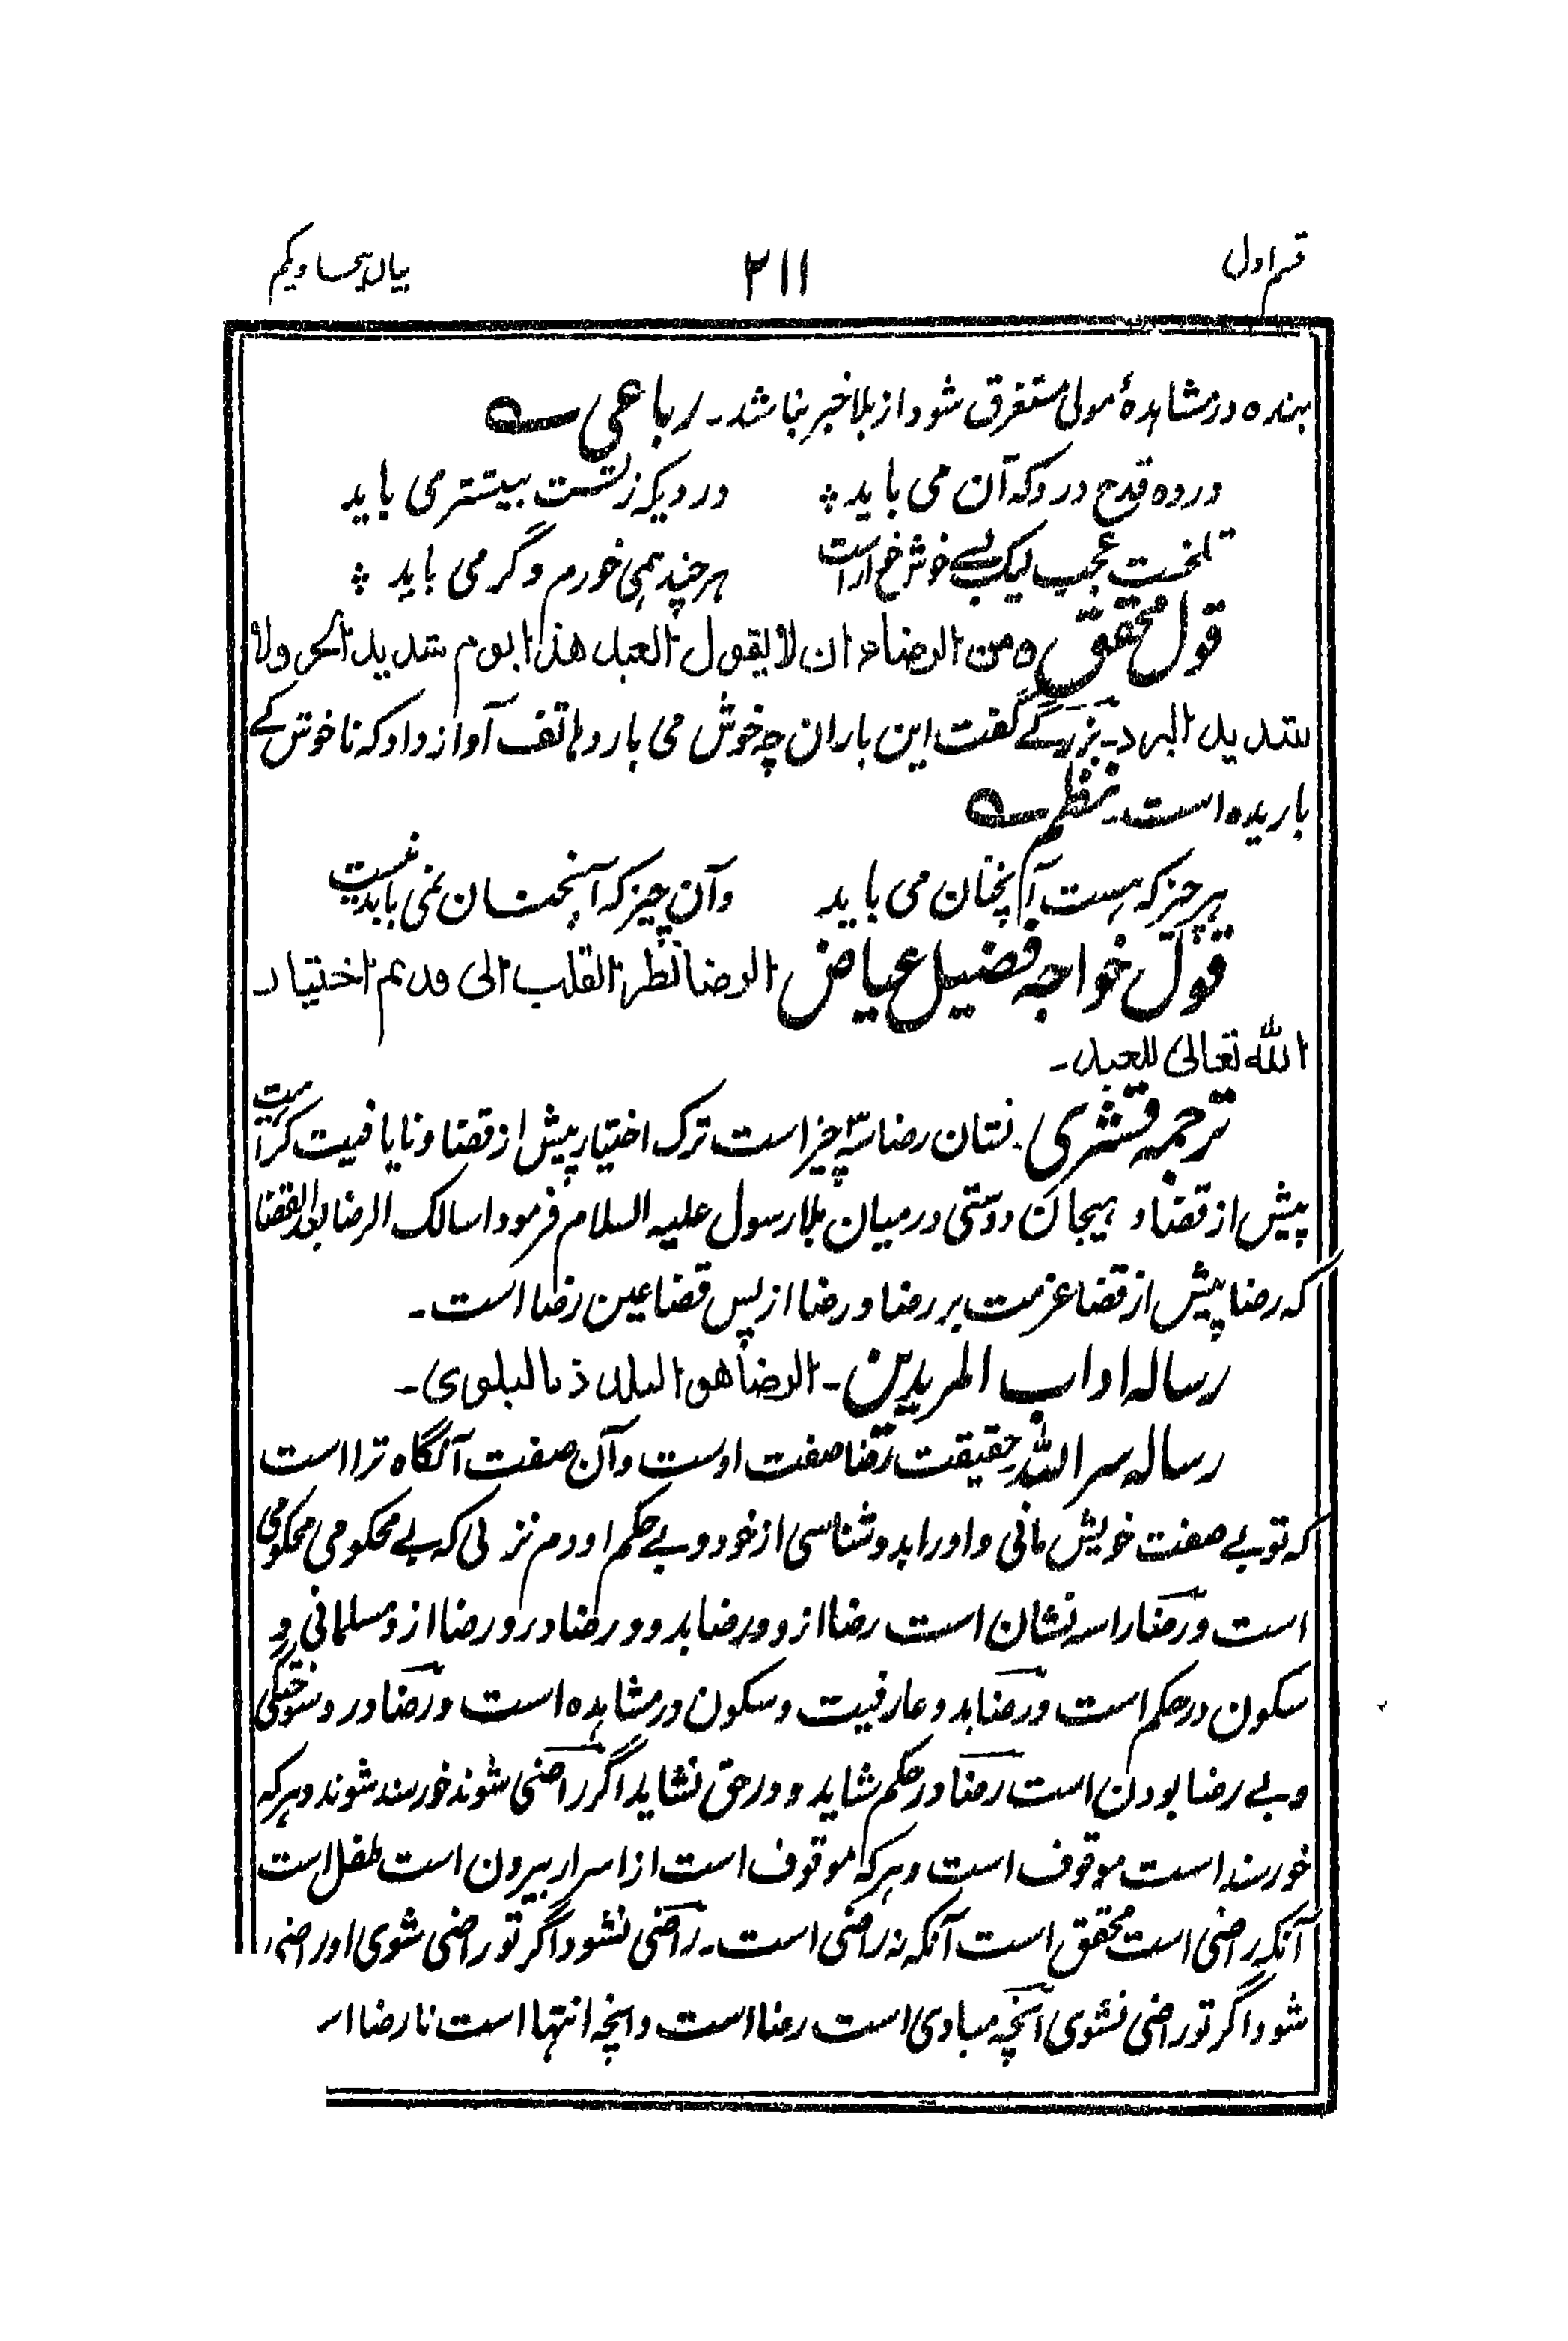 قسم اول ۲۱۱ بیان پنجاه و یکم
بنده در مشاہدۂ مولی مستغرق شود از بلا خبر نباشد۔ رباعی
در ده قدح درد که آن می باید ؞ درد یکه زلتست بیشتر می باید
تلخست عجب لیک بسے خوش خوار است هر چند همی خورم دگر می باید ؞
قول محقق من الرضاء ان لا یقول العبد هذا یوم شدید الحر ولا
شدید البرد۔ بزرگے گفت این باران چه خوش می بارد هاتف آواز داد که ناخوش کے
باریده است۔ نظم
هر چیز که هست آنچنان می باید وآن چیز که آنچنان نمی باید نیست
قول خواجه فضیل عیاض الرضا نظر القلب الی قدیم اختیار
الله تعالی للعبد۔
ترجمه قشری۔ نشان رضا سه چیز است ترک اختیار پیش از قضا و نایافیت کراست
پیش از قضا و هیجان دوستی در میان بلا رسول علیه السلام فرمود اسالک الرضا بعد القضا
که رضا پیش از قضا عزمت بر رضا و رضا از پس قضا عین رضا است۔
رساله اداب المریدین۔ الرضا هو البلاذ بالبلوی۔
رساله سر الله حقیقت رضا صفت اوست وآن صفت آنگاه ترا است
که تو بے صفت خویش مانی و او را بدو شناسی از خود و بے حکم او دم نزلی که بے محکومی محکومی
است و رضا را سه نشان است رضا ازو و رضا بدو و رضا درو رضا ازو مسلمانی و
سکون در حکم است و رضا بدو عارفیت و سکون در مشاهده است و رضا درو سوختگی
و بے رضا بودن است رضا در حکم شاید و در حق نشاید اگر راضی شوند خورسند شوند و هر که
خورسند است موقوف است و هر که موقوف است از اسرار بیرون است طفل است
آنکه راضی است محقق است آنکه نه راضی است۔ راضی نشود اگر تو راضی شوی او راضی
شود اگر تو راضی نشوی آنچه مبادی است رضا است و انچه انتها است نا رضا